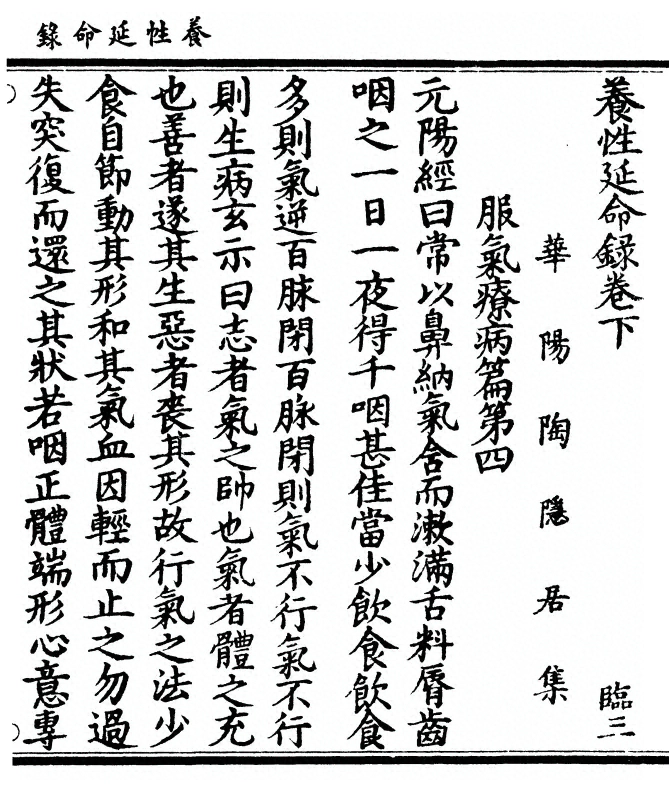 養性延命錄
養性延命錄卷下 臨三
華陽陶隱居集
服氣療病篇第四
元陽經曰常以鼻納氣含而漱滿舌料脣齒
咽之一日一夜得千咽甚佳當少飲食飲食
多則氣逆百脉閉百脉閉則氣不行氣不行
則生病玄示曰志者氣之帥也氣者體之充
也善者遂其生惡者喪其形故行氣之法少
食自節動其形和其氣血因輕而止之勿過
失突復而還之其狀若咽正體端形心意專